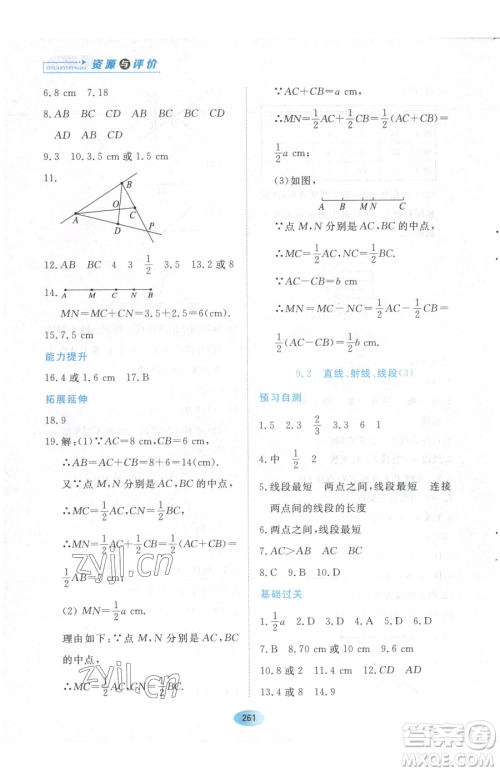 资源与评价
6.8 cm 7.18
8.AB BC CD AD BC CD CD
AD AB CD
9.3 10.3.5 cm 或 1.5 cm
11.
B
O
C
A
D
P
12.AB BC 4 3 1/2 3.5 13.2 或 8
14.
A M C N B
MN=MC+CN=3.5+2.5=6(cm)
15.7.5 cm
能力提升
16.4 或 1.6 cm 17.B
拓展延伸
18.9
19.解:(1)∵AC=8 cm,CB=6 cm,
∴AB=AC+CB=8+6=14(cm).
又∵点 M,N 分别是 AC,BC 的中点,
∴MC=1/2AC,CN=1/2BC.
∴MN=1/2AC+1/2CB=1/2(AC+CB)=
1/2AB=7 cm.
(2) MN=1/2a cm.
理由如下:∵点 M,N 分别是 AC,BC
的中点,
∴MC=1/2AC,CN=1/2BC.
∵AC+CB=a cm,
∴MN=1/2AC+1/2CB=1/2(AC+CB)=
1/2a cm;
(3)如图,
A B M N C
∵点 M,N 分别是 AC,BC 的中点,
∴MC=1/2AC,NC=1/2BC.
∵AC-CB=b cm
∴MN=MC-NC=1/2AC-1/2CB=
1/2(AC-CB)=1/2b cm.
9.2 直线、射线、线段(3)
预习自测
1.5 2.3 2/3 3.3 6 1
4.中 1/2 2
5.线段最短 两点之间,线段最短 连接
两点间的线段的长度
6.两点之间,线段最短
7.AC>AB AC BC
8.C 9.B 10.D
基础过关
1.1/2a 2.D 3.D 4.D 5.D 6.D
7.B 8.10 cm 或 34 cm 9.D
10.8 或 2 11.4 cm 12.CD AD
13.4 或 8 14.9
261
zyjl.cn
zyjl.cn
答案圈
MXQE.COM